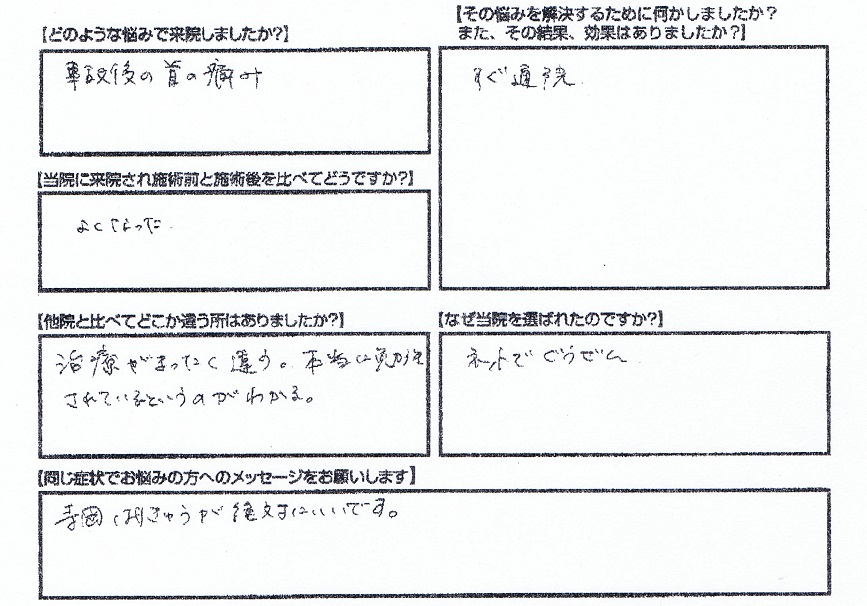 【どのような悩みで来院しましたか?】
事故後の首の痛み
【その悩みを解決するために何かしましたか?
また、その結果、効果はありましたか?】
すぐ通院
【当院に来院され施術前と施術後を比べてどうですか?】
よくなった
【他院と比べてどこか違う所はありましたか?】
治療がまったく違う。本当に勉強
されているというのがわかる。
【なぜ当院を選ばれたのですか?】
ネットでぐうぜん
【同じ症状でお悩みの方へのメッセージをお願いします】
寺岡はりきゅうが絶対にいいです。